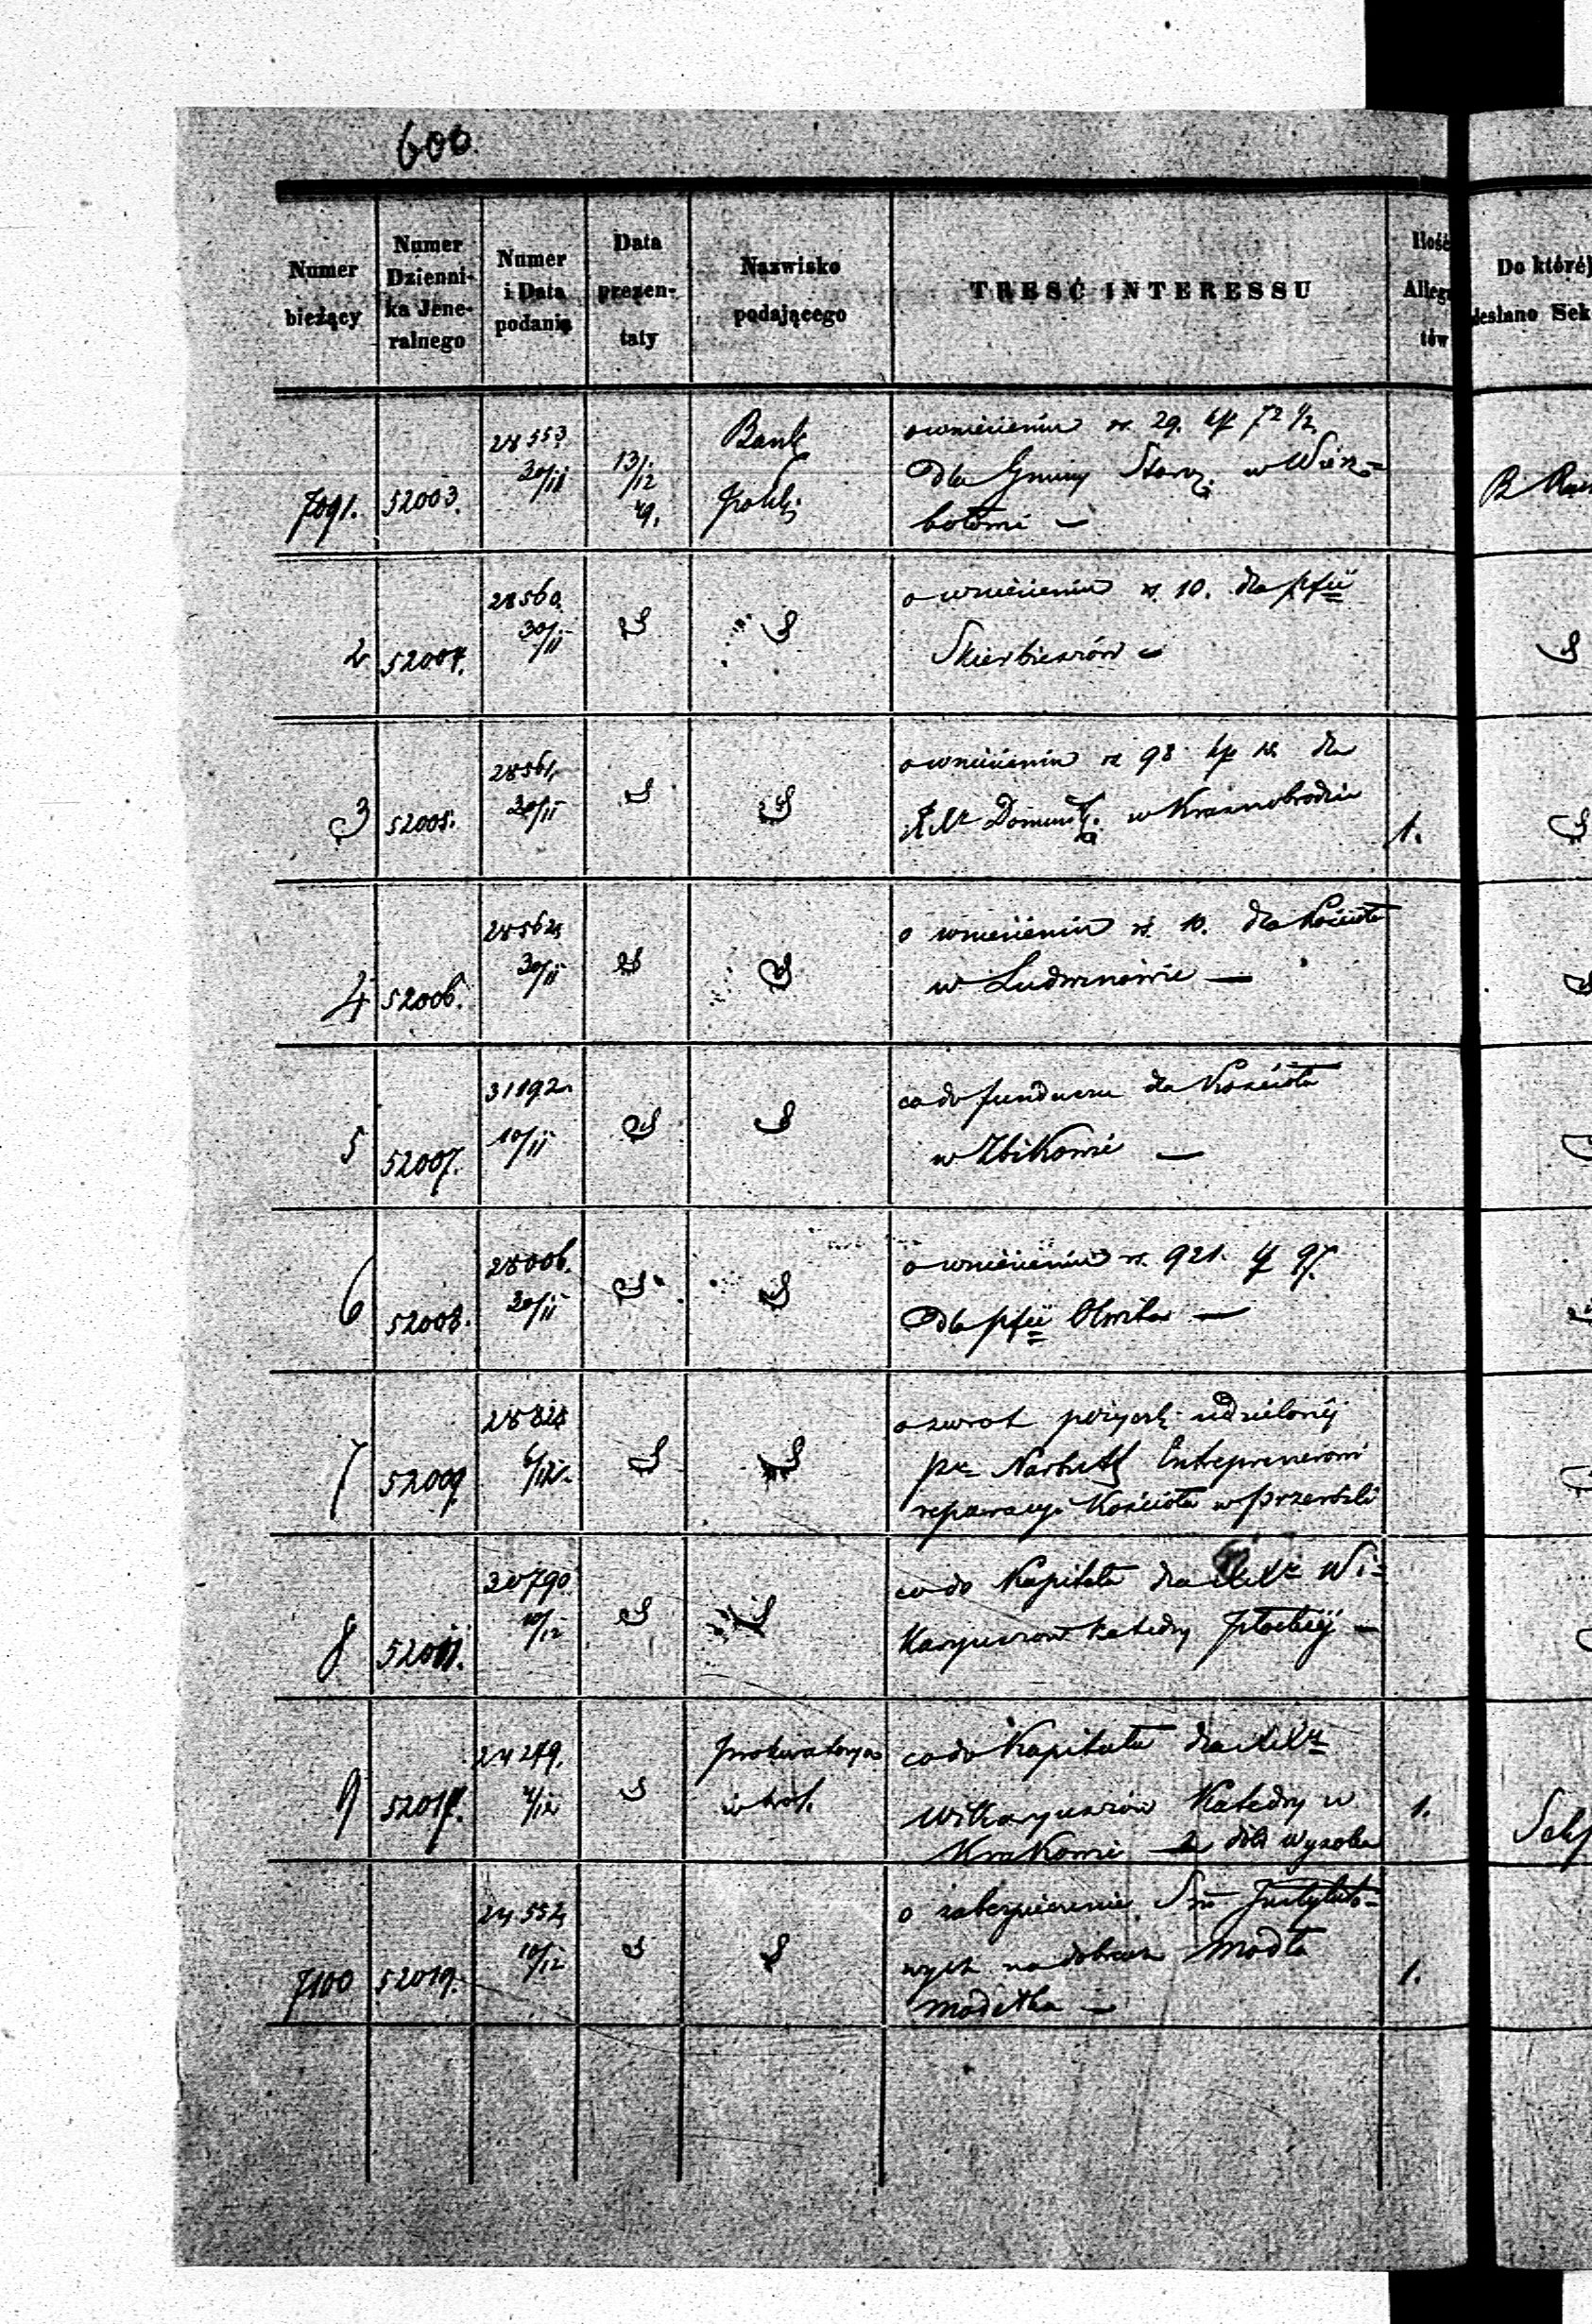 600.
Numer bieżący
Numer Dzienni-ka Jene-ralnego
Numer i Data podania
Data prezen-taty
Nazwisko podającego
TREŚĆ INTERESSU
Ilość Allega tów
Do któréj
desłano Sek
7091. 52003. 28553 30/11 13/12 49. Bank Polski
o wniesieniu rs. 29. kp 72 1/2
Dla Gminy Staroz. w Wierz-
bołowi —
2 52004. 28560. 30/11
o wniesieniu rs. 10. dla pfii
Skierbieszów —
3 52005. 28561. 30/11
o wniesieniu rs 98 kp dla
XX Domink. w Krasnobrodzie 1.
4 52006. 28562 30/11
o wniesieniu rs. 10. dla Kościoła
w Ludwinowie —
5 52007. 31192. 10/11
co do funduszu dla Kościoła
w Zbikowie —
6 52008. 28006. 30/11
o wniesieniu rs. 921. kp 97.
Dla pfii —
7 52009 6/12
o zwrot pożyczk. udzieloněj
pr. Narbutt Entreprenerowi
reparacyi Kościoła w Przerośli
8 52011. 30790 10/12
co do Kapitału dla XX Wi-
karyuszów Katedry Płockiéj —
9 52017. 24249. Prokuratorya
w Król.
co do Kapitału dla XX
Wikaryuszów Katedry w 1.
Krakowie — z dóbr Wysoka
7100 52019. 24552 10/12
o zabezpieczenie Sm Instytuto-
wych na dobrach Modła 1.
Modełka —